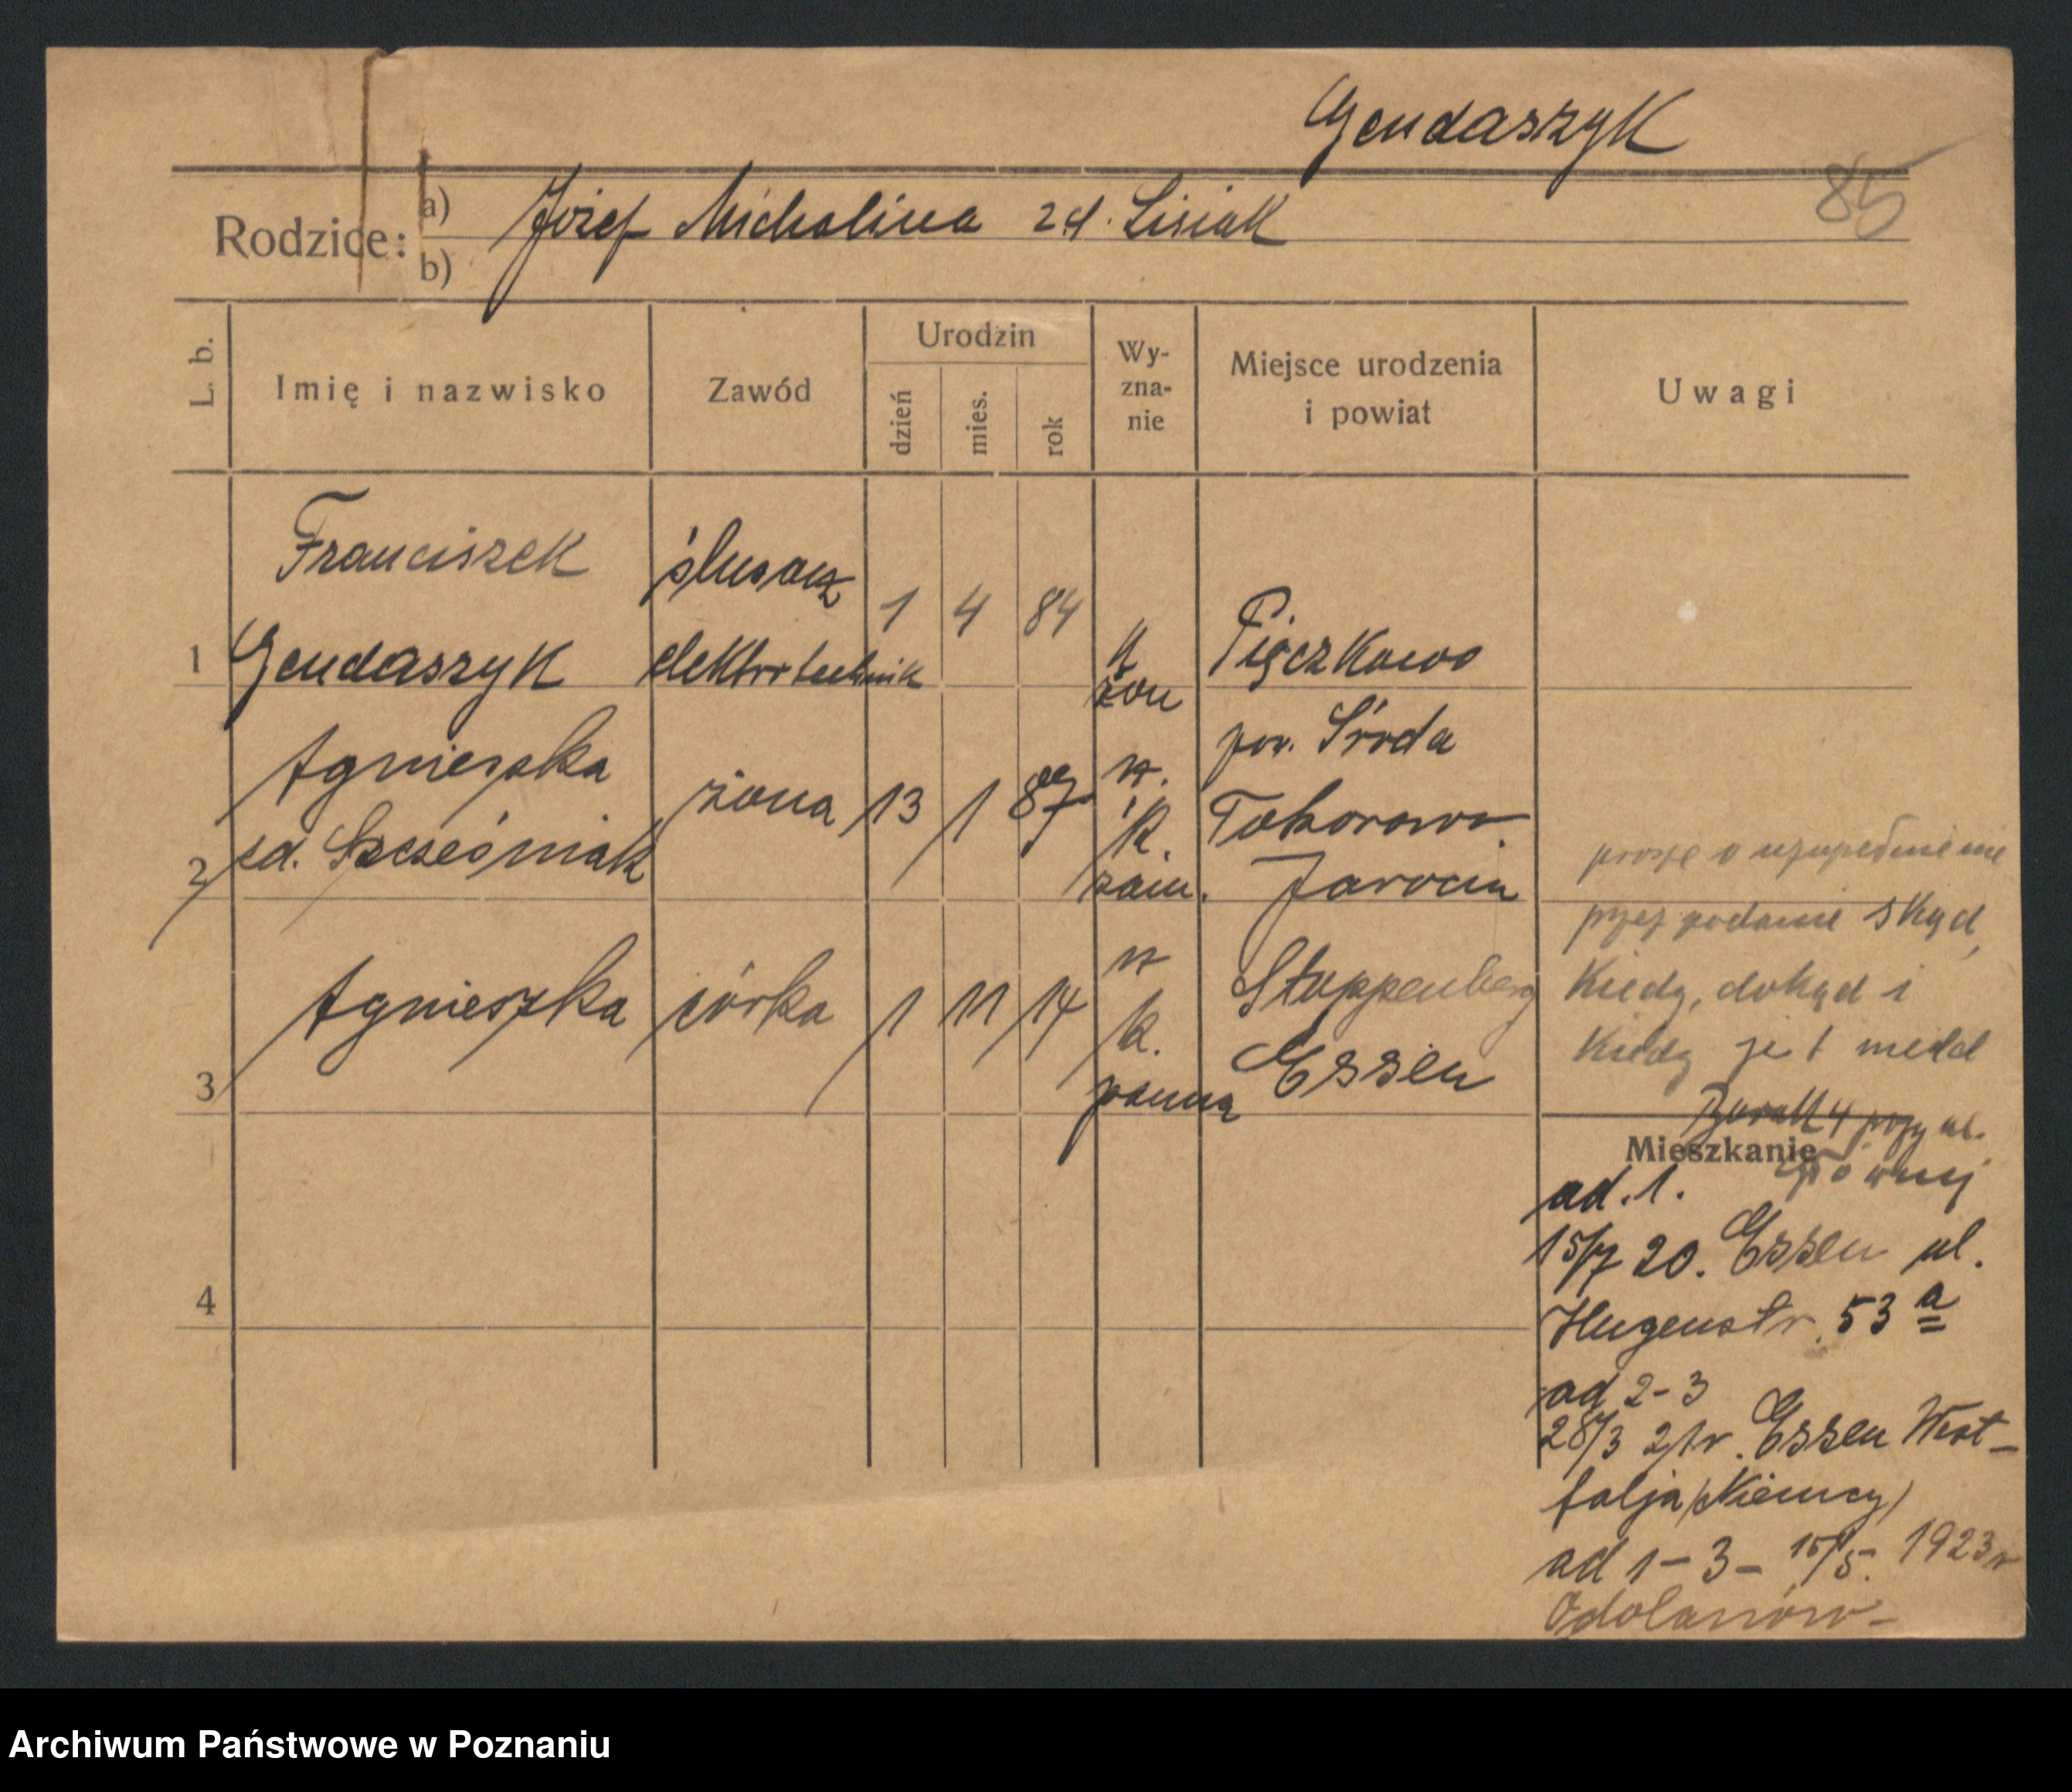 Gendaszyk
85
Rodzice:
a) Józef Michalina zd. Lisiak
b)
L. b.
Imię i nazwisko
Zawód
Urodzin
dzień
mies.
rok
Wy-
zna-
nie
Miejsce urodzenia
i powiat
Uwagi
Franciszek
Gendaszyk
1
ślusarz
elektrotechnik
1 4 84
k
żon
Pięczkowo
pow. Środa
Agnieszka
zd. Szcześniak
2
żona
13 1 87
rz.
k.
zam.
Jarocin
Agnieszka
3
córka
1 11 14
rz
k.
panna
Stoppenberg
Essen
4
proszę o uzupełnienie
przez podanie skąd,
kiedy, dokąd i
kiedy jest meld
Barak 4 przy ul.
Mieszkanie
ad. 1.
15/7 20. Essen ul.
Hugenstr. 53 a
ad 2-3
28/3 21 r. Essen West-
falja (Niemcy)
ad 1-3- 15/5. 1923 r
Odolanów-
Archiwum Państwowe w Poznaniu